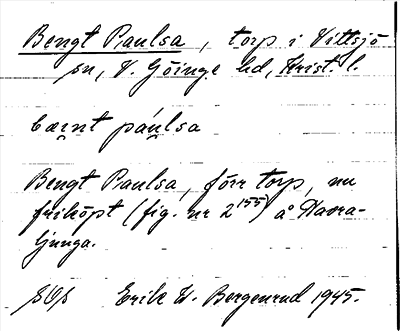 Bengt Paulsa, torp i Vittsjö
sn, V. Göinge hd, Krist. l.
bæ̱rnt páu̱lsa
Bengt Paulsa, förr torp, nu
friköpt (fig. nr 2¹⁵⁵) å Havra-
ljunga.
Erik W. Bergenrud 1945.